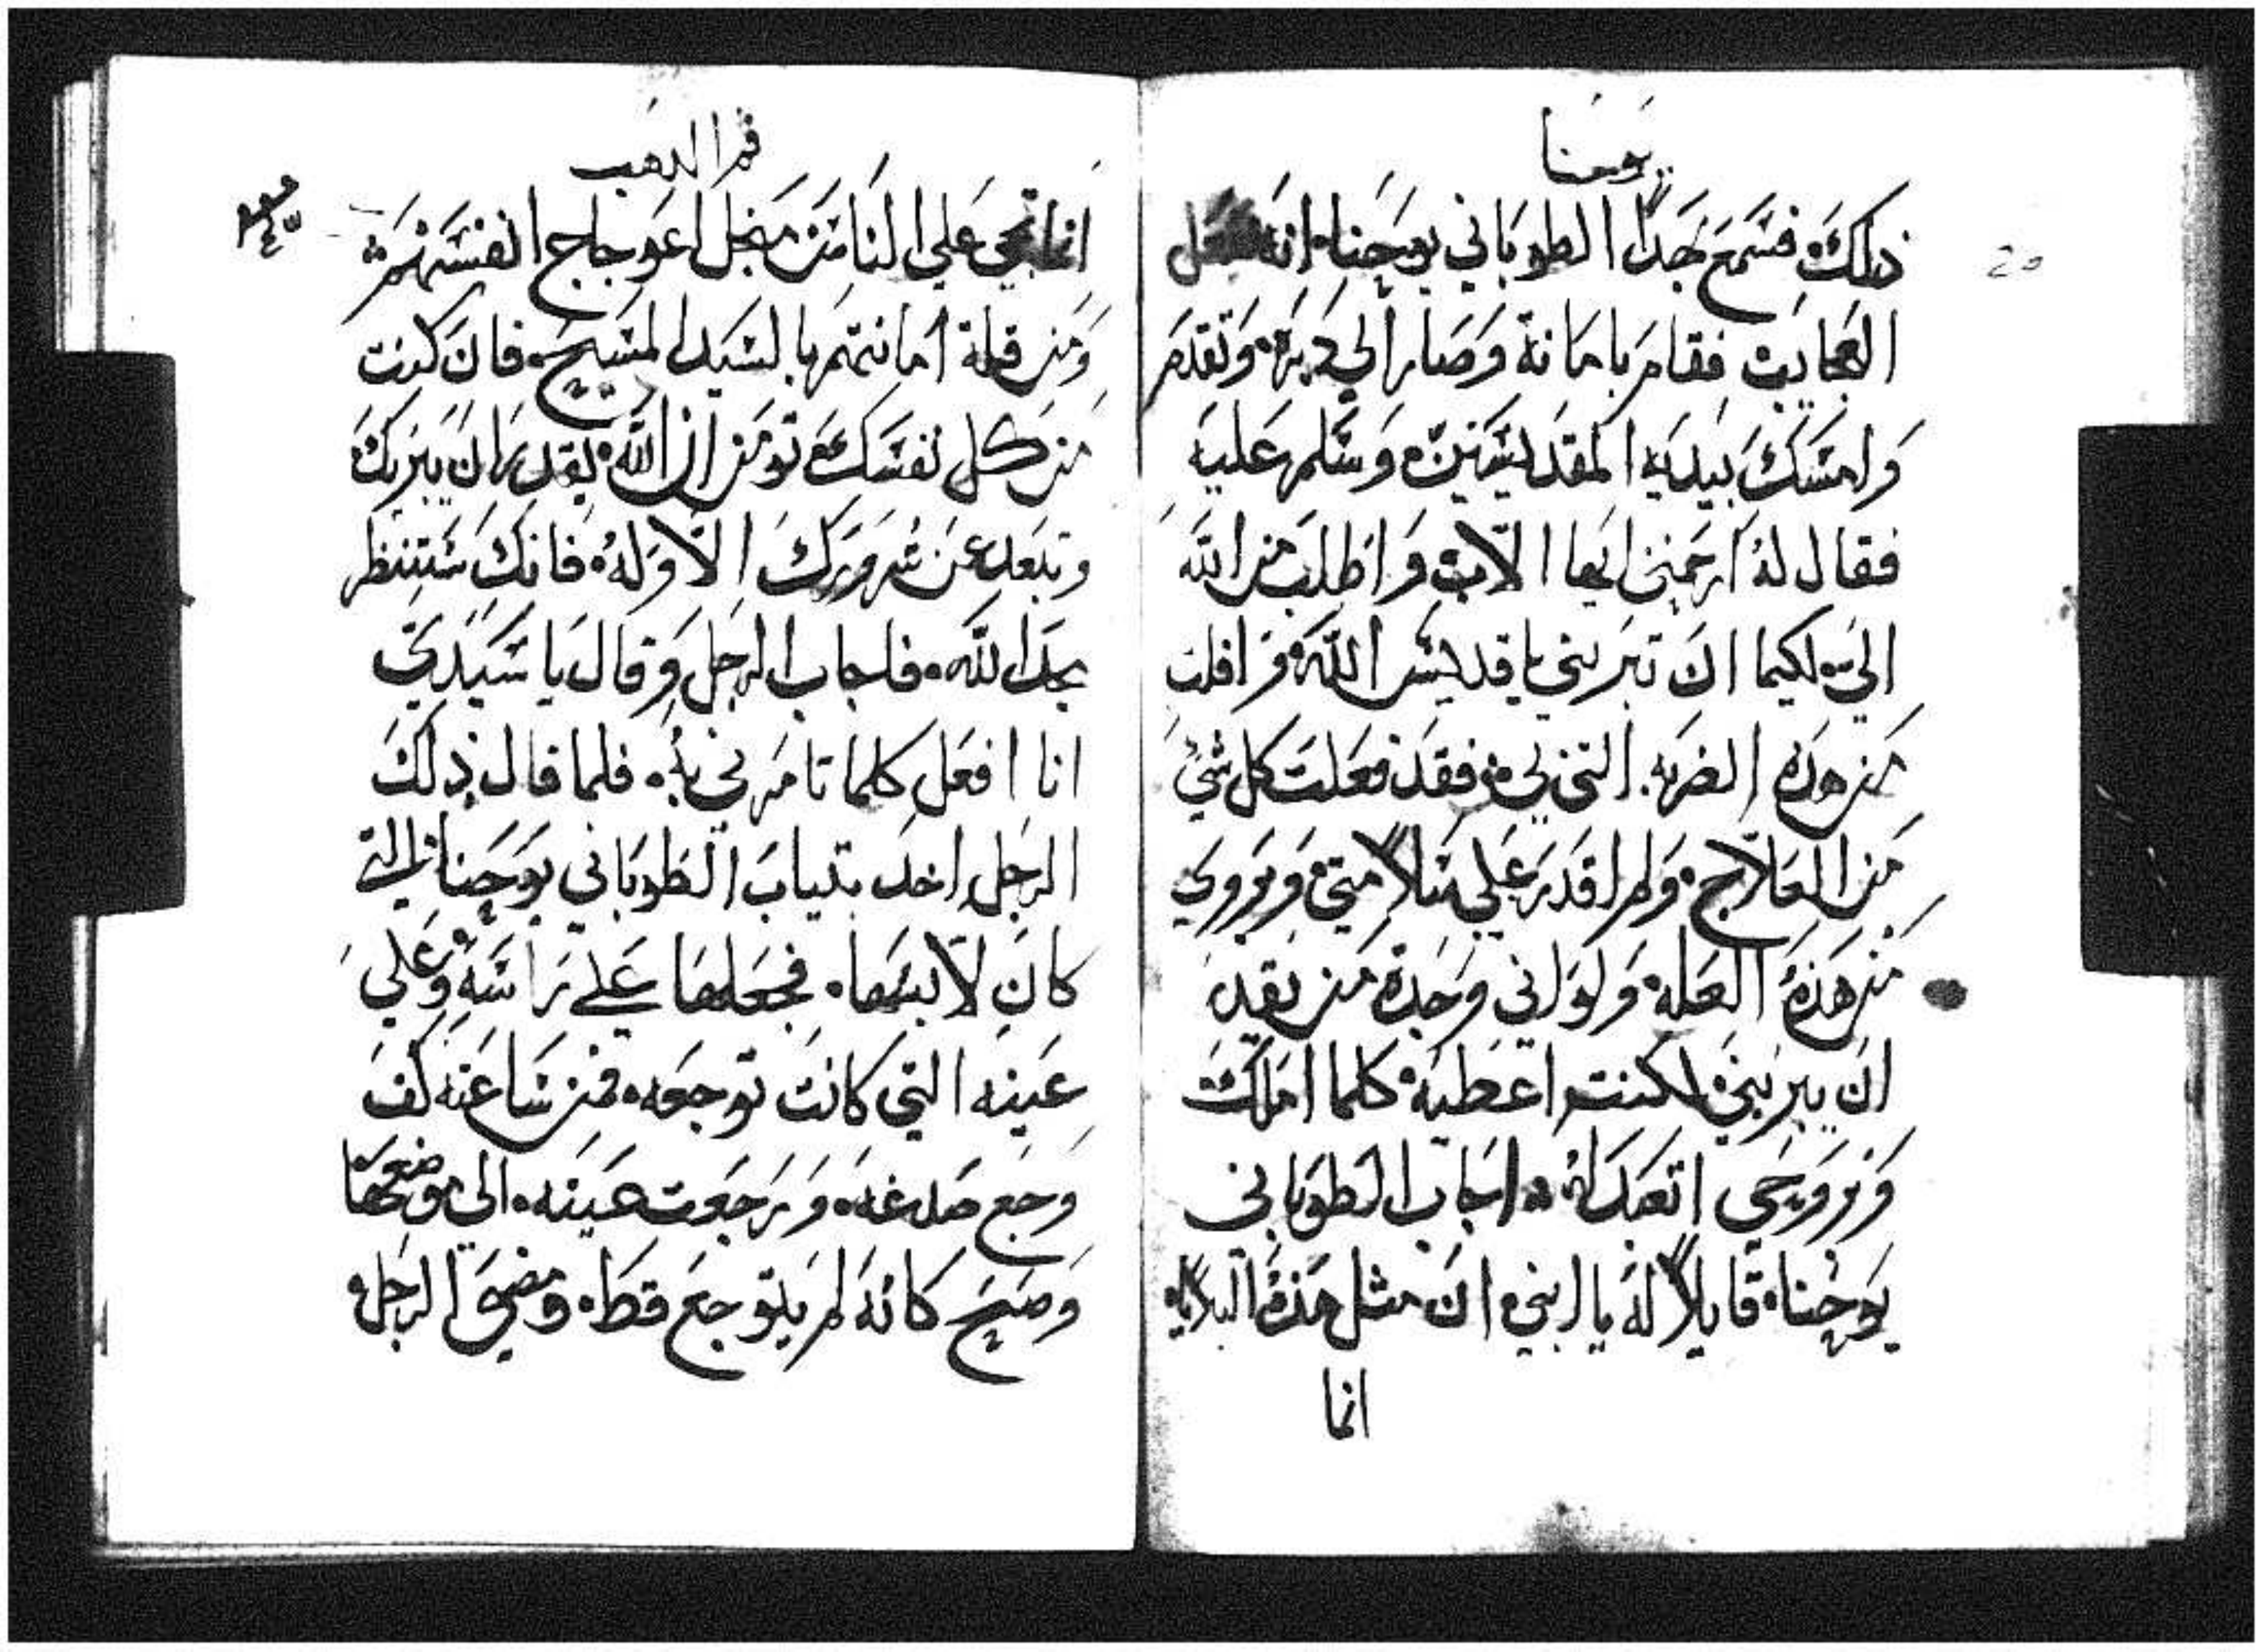 يوحنا
ذلك فسمع هدا الطوباني يوحنا انه يعمل
العجايب فقام بامانة وصار الي ديره وتقدم
وامسك بيديه المقديسين وسلم عليه
فقال له ارحمني ايها الاب واطلب من الله
الي لكيما ان تبريني يا قديس الله وافلت
من هده الضربه التي بي فقد فعلت كل شي
من العلاج ولم اقدر علي سلامتي وبروي
من هذه العله ولو اني وجدة من يقدر
ان يبريني لكنت اعطيه كلما املك
وبروحي اتعبد له اجاب الطوباني
يوحنا قايلاً له يا ابني ان مثل هذه البلايا
انما
فم الدهب
انما تجي علي الناس من اجل اعوجاج انفسهم
ومن قلة امانتهم بالسيد المسيح فان كنت
من كل نفسك تومن ان الله يقدر ان يبريك
وتبعد عن شرورك الاوله فانك ستنظر
مجد الله فاجاب الرجل وقال يا سيدي
انا افعل كلما تامرني به فلما قال ذلك
الرجل اخد بتياب الطوباني يوحنا التي
كان لابسها فجعلها علي راسه وعلي
عينه التي كانت توجعه فمن ساعته كف
وجع صدغه ورجعت عينه الي موضعها
وصح كانه لم يتوجع قط ومضي الرجل